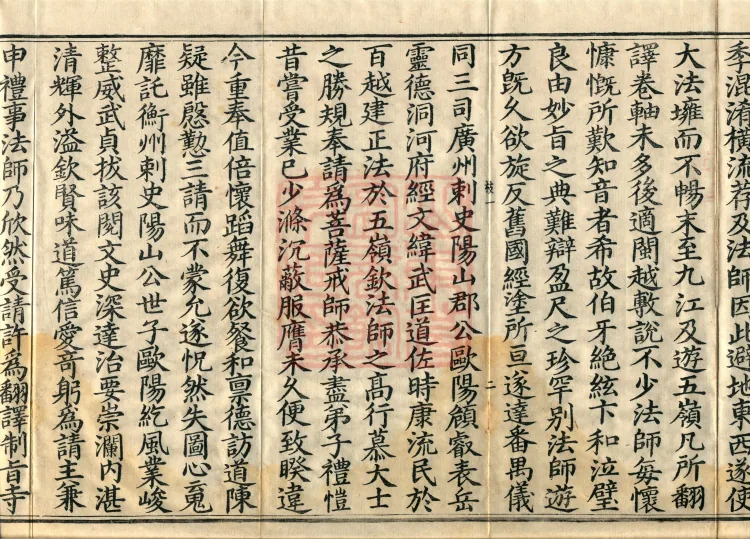 季混淆橫流荐及法師因此避地東西遂使
大法壅而不暢末至九江及遊五嶺凡所翻
譯卷軸未多後適閩越敷說不少法師每懷
慷慨所歎知音者希故伯牙絶絃卞和泣璧
良由妙旨之典難辯盈尺之珍罕別法師遊
方旣久欲旋反舊國經塗所亘遂達番禺儀
枝一 二
同三司廣州刺史陽山郡公歐陽頠睿表岳
靈德洞河府經文緯武匡道佐時康流民於
百越建正法於五嶺欽法師之髙行慕大士
之勝規奉請爲菩薩戒師恭承盡弟子禮愷
昔嘗受業已少滌沉蔽服膺未久便致睽違
今重奉值倍懷蹈舞復欲餐和禀德訪道陳
疑雖慇懃三請而不蒙允遂怳然失圖心䰟
靡託衡州刺史陽山公世子歐陽紇風業峻
整威武貞拔該閱文史深達治要崇瀾內湛
清輝外溢欽賢味道篤信愛竒躬爲請主兼
申禮事法師乃欣然受請許爲翻譯制旨寺